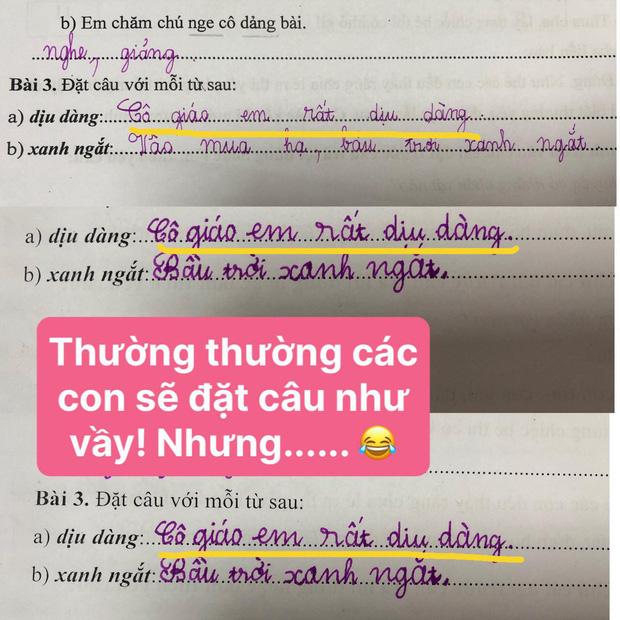 b) Em chăm chú nge cô dảng bài.
nghe, giảng
Bài 3. Đặt câu với mỗi từ sau:
a) dịu dàng:...Cô giáo em rất dịu dàng...
b) xanh ngắt:...Vào mua hạ, bầu trời xanh ngắt...
a) dịu dàng:...Cô giáo em rất dịu dàng...
b) xanh ngắt:...Bầu trời xanh ngắt...
Thường thường các
con sẽ đặt câu như
vầy! Nhưng...... 😂
Bài 3. Đặt câu với mỗi từ sau:
a) dịu dàng:...Cô giáo em rất dịu dàng...
b) xanh ngắt:...Bầu trời xanh ngắt...